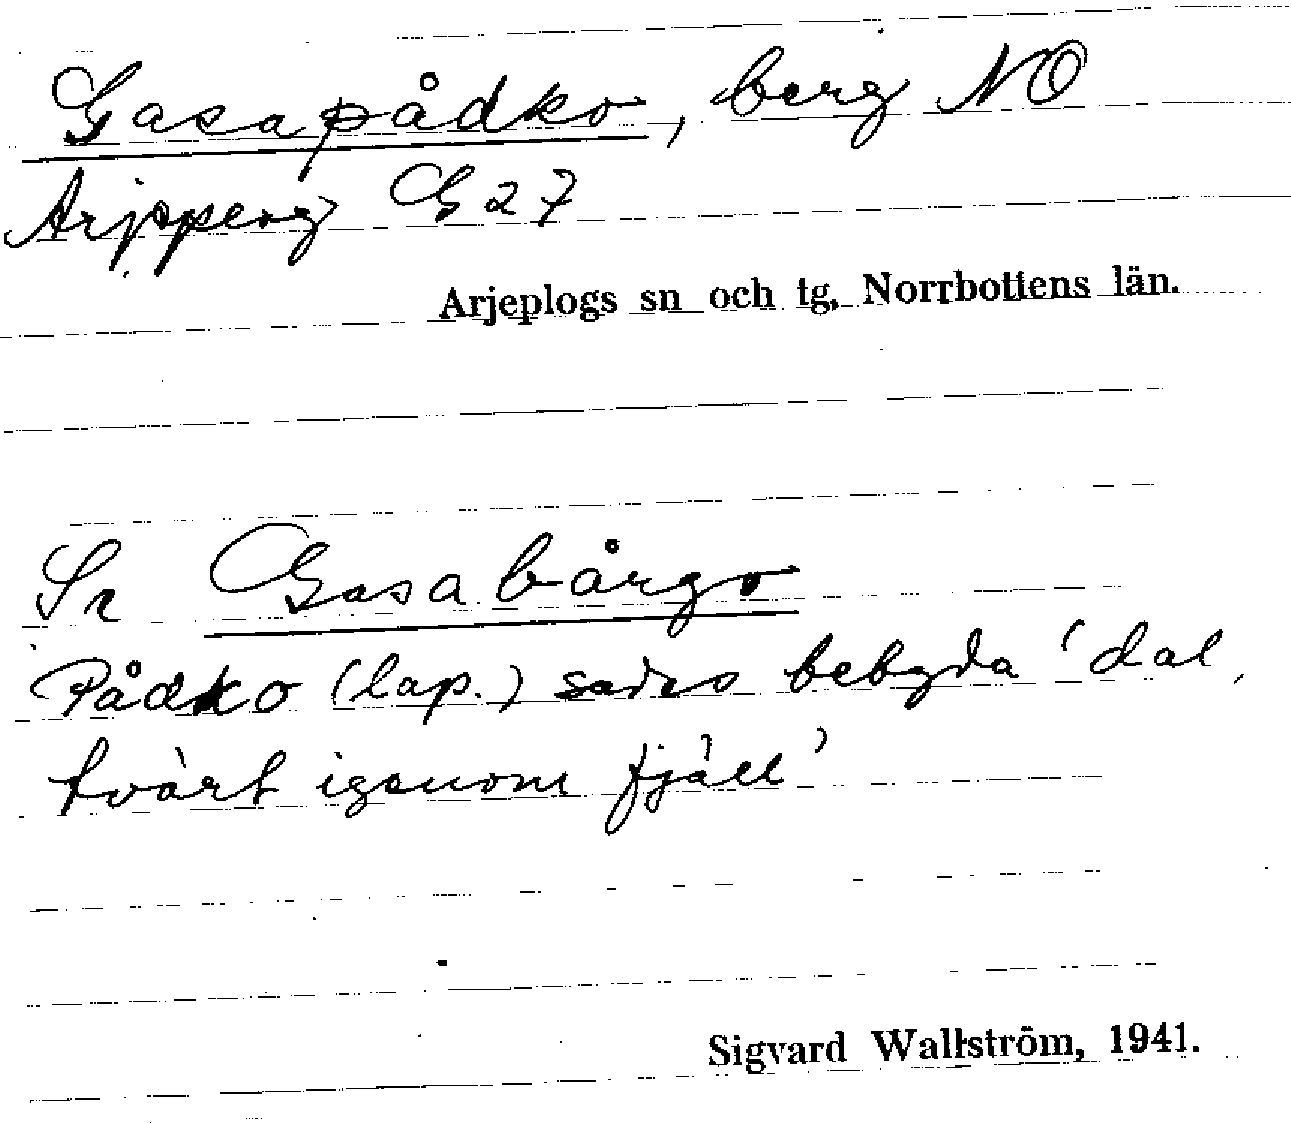 Gasapådko, berg NO
Arjpperg G 27
Arjeplogs sn och tg, Norrbottens län.
Se Gasabårgo
Pådko (lap.) sades betyda 'dal
tvärt igenom fjäll'
Sigvard Wallström, 1941.